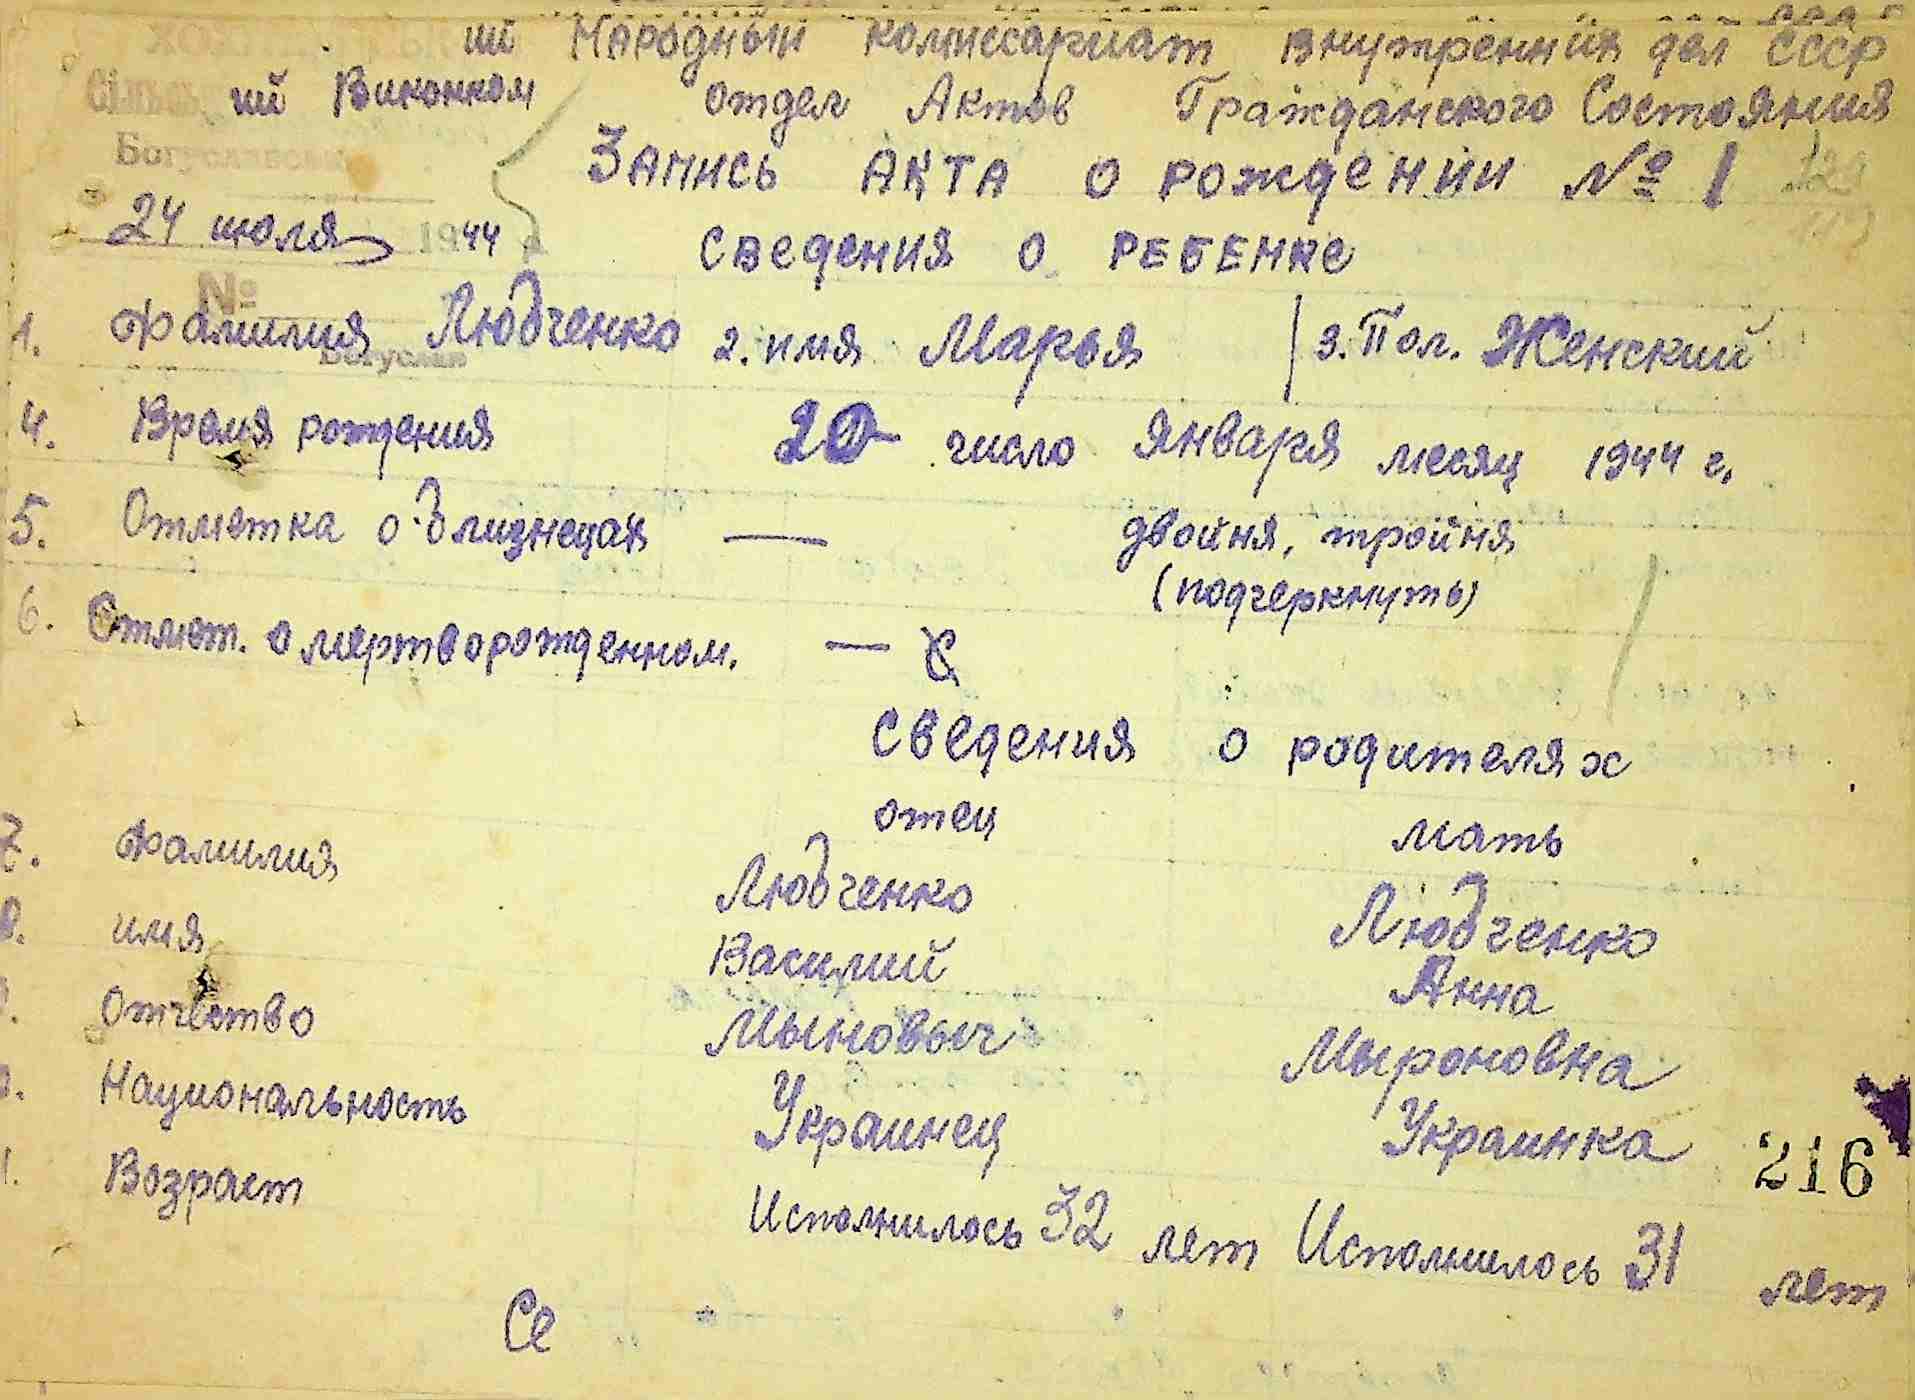 ий Народный комиссариат внутренних дел СССР
ий Виконком отдел Актов Гражданского Состояния
Богуславськ
Запись акта о рождении № 1
24 июля 1944
сведения о ребенке
№
1. Фамилия Любченко 2. имя Марья 3. Пол. Женский
Богуслав
4. Время рождения 20 число января месяц 1944 г.
5. Отметка о близнецах — двойня, тройня
(подчеркнуть)
6. Отмет. о мертворожденном. —
сведения о родителях
отец мать
7. Фамилия Любченко Любченко
8. имя Василий Анна
Отчество Мыновыч Мыроновна
Национальность Украинец Украинка
216
Возраст Исполнилось 32 лет Исполнилось 31 лет
Се